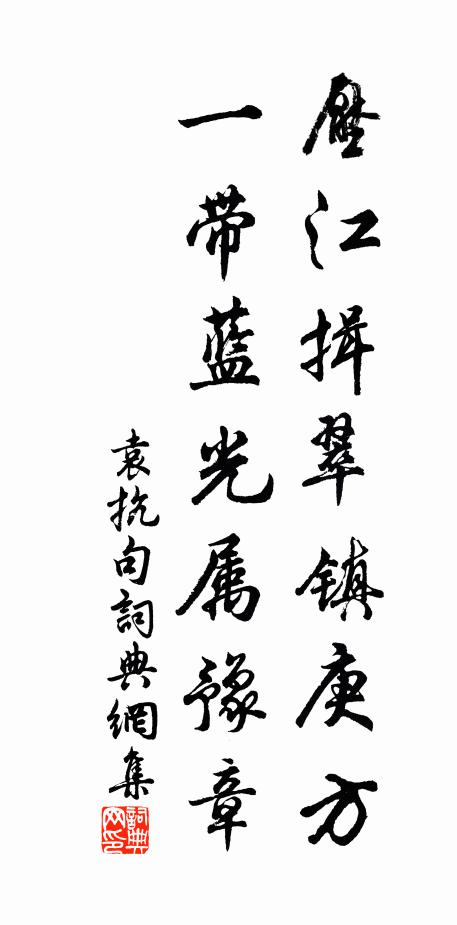 壓江揖翠鎮庚方
一带藍光属豫章
袁抗句詞典網集
詞典網印